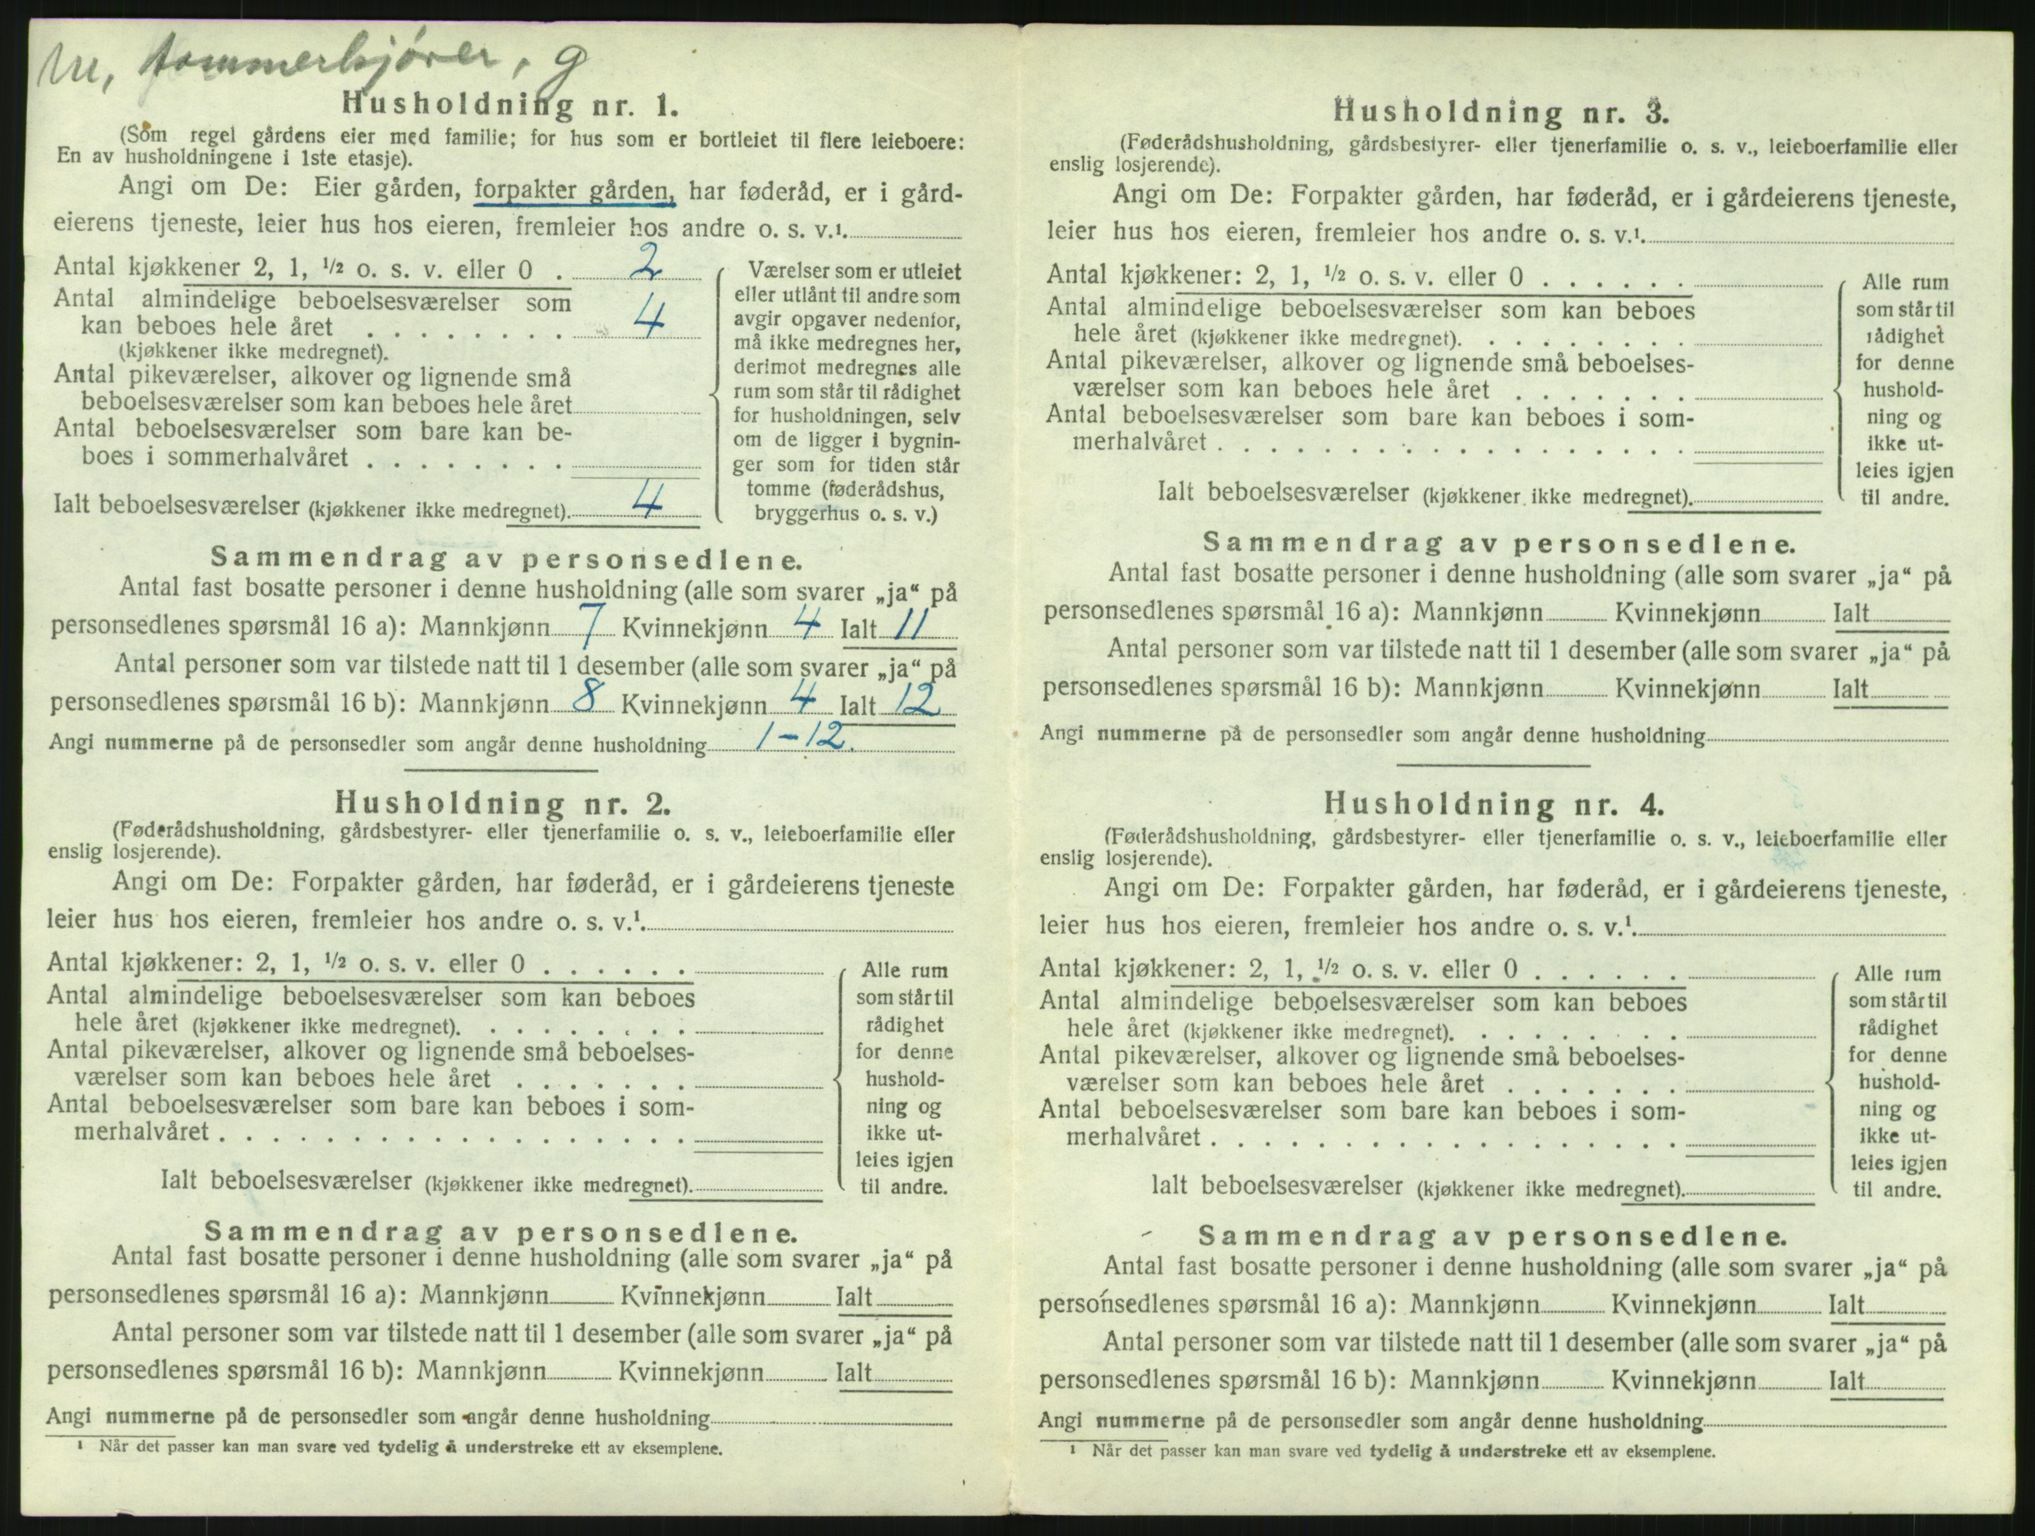 m, tømmerkjører, g
Husholdning nr. 1.
(Som regel gårdens eier med familie; for hus som er bortleiet til flere leieboere:
En av husholdningene i 1ste etasje).
Angi om De: Eier gården, forpakter gården, har føderåd, er i gård-
eierens tjeneste, leier hus hos eieren, fremleier hos andre o. s. v.¹.
Antal kjøkkener 2, 1, ½ o. s. v. eller 0 . 2
Antal almindelige beboelsesværelser som
kan beboes hele året . . . . . . . 4
(kjøkkener ikke medregnet).
Antal pikeværelser, alkover og lignende små
beboelsesværelser som kan beboes hele året
Antal beboelsesværelser som bare kan be-
boes i sommerhalvåret . . . . . . .
Ialt beboelsesværelser (kjøkkener ikke medregnet). 4
Værelser som er utleiet
eller utlånt til andre som
avgir opgaver nedenfor,
må ikke medregnes her,
derimot medregnes alle
rum som står til rådighet
for husholdningen, selv
om de ligger i bygnin-
ger som for tiden står
tomme (føderådshus,
bryggerhus o. s. v.)
Sammendrag av personsedlene.
Antal fast bosatte personer i denne husholdning (alle som svarer „ja“ på
personsedlenes spørsmål 16 a): Mannkjønn 7 Kvinnekjønn 4 Ialt 11
Antal personer som var tilstede natt til 1 desember (alle som svarer „ja“ på
personsedlenes spørsmål 16 b): Mannkjønn 8 Kvinnekjønn 4 Ialt 12
Angi nummerne på de personsedler som angår denne husholdning 1-12.
Husholdning nr. 2.
(Føderådshusholdning, gårdsbestyrer- eller tjenerfamilie o. s. v., leieboerfamilie eller
enslig losjerende).
Angi om De: Forpakter gården, har føderåd, er i gårdeierens tjeneste
leier hus hos eieren, fremleier hos andre o. s. v.¹.
Antal kjøkkener: 2, 1, ½ o. s. v. eller 0 . . . . . .
Antal almindelige beboelsesværelser som kan beboes
hele året (kjøkkener ikke medregnet). . . . . . . . .
Antal pikeværelser, alkover og lignende små beboelses-
værelser som kan beboes hele året . . . . . . .
Antal beboelsesværelser som bare kan beboes i som-
merhalvåret . . . . . . . . . . . . . . . . . .
Ialt beboelsesværelser (kjøkkener ikke medregnet).
Alle rum
som står til
rådighet
for denne
hushold-
ning og
ikke ut-
leies igjen
til andre.
Sammendrag av personsedlene.
Antal fast bosatte personer i denne husholdning (alle som svarer „ja“ på
personsedlenes spørsmål 16 a): Mannkjønn Kvinnekjønn Ialt
Antal personer som var tilstede natt til 1 desember (alle som svarer „ja“ på
personsedlenes spørsmål 16 b): Mannkjønn Kvinnekjønn Ialt
Angi nummerne på de personsedler som angår denne husholdning
¹ Når det passer kan man svare ved tydelig å understreke ett av eksemplene.
Husholdning nr. 3.
(Føderådshusholdning, gårdsbestyrer- eller tjenerfamilie o. s. v., leieboerfamilie eller
enslig losjerende).
Angi om De: Forpakter gården, har føderåd, er i gårdeierens tjeneste,
leier hus hos eieren, fremleier hos andre o. s. v.¹.
Antal kjøkkener: 2, 1, ½ o. s. v. eller 0 . . . . . .
Antal almindelige beboelsesværelser som kan beboes
hele året (kjøkkener ikke medregnet). . . . . . . . .
Antal pikeværelser, alkover og lignende små beboelses-
værelser som kan beboes hele året . . . . . . .
Antal beboelsesværelser som bare kan beboes i som-
merhalvåret . . . . . . . . . . . . . . . . . .
Ialt beboelsesværelser (kjøkkener ikke medregnet).
Alle rum
som står til
rådighet
for denne
hushold-
ning og
ikke ut-
leies igjen
til andre.
Sammendrag av personsedlene.
Antal fast bosatte personer i denne husholdning (alle som svarer „ja“ på
personsedlenes spørsmål 16 a): Mannkjønn Kvinnekjønn Ialt
Antal personer som var tilstede natt til 1 desember (alle som svarer „ja“ på
personsedlenes spørsmål 16 b): Mannkjønn Kvinnekjønn Ialt
Angi nummerne på de personsedler som angår denne husholdning
Husholdning nr. 4.
(Føderådshusholdning, gårdsbestyrer- eller tjenerfamilie o. s. v., leieboerfamilie eller
enslig losjerende).
Angi om De: Forpakter gården, har føderåd, er i gårdeierens tjeneste,
leier hus hos eieren, fremleier hos andre o. s. v.¹.
Antal kjøkkener: 2, 1, ½ o. s. v. eller 0 . . . . . .
Antal almindelige beboelsesværelser som kan beboes
hele året (kjøkkener ikke medregnet). . . . . . . . .
Antal pikeværelser, alkover og lignende små beboelses-
værelser som kan beboes hele året . . . . . . .
Antal beboelsesværelser som bare kan beboes i som-
merhalvåret . . . . . . . . . . . . . . . . . .
Ialt beboelsesværelser (kjøkkener ikke medregnet).
Alle rum
som står til
rådighet
for denne
hushold-
ning og
ikke ut-
leies igjen
til andre.
Sammendrag av personsedlene.
Antal fast bosatte personer i denne husholdning (alle som svarer „ja“ på
personsedlenes spørsmål 16 a): Mannkjønn Kvinnekjønn Ialt
Antal personer som var tilstede natt til 1 desember (alle som svarer „ja“ på
personsedlenes spørsmål 16 b): Mannkjønn Kvinnekjønn Ialt
Angi nummerne på de personsedler som angår denne husholdning
¹ Når det passer kan man svare ved tydelig å understreke ett av eksemplene.